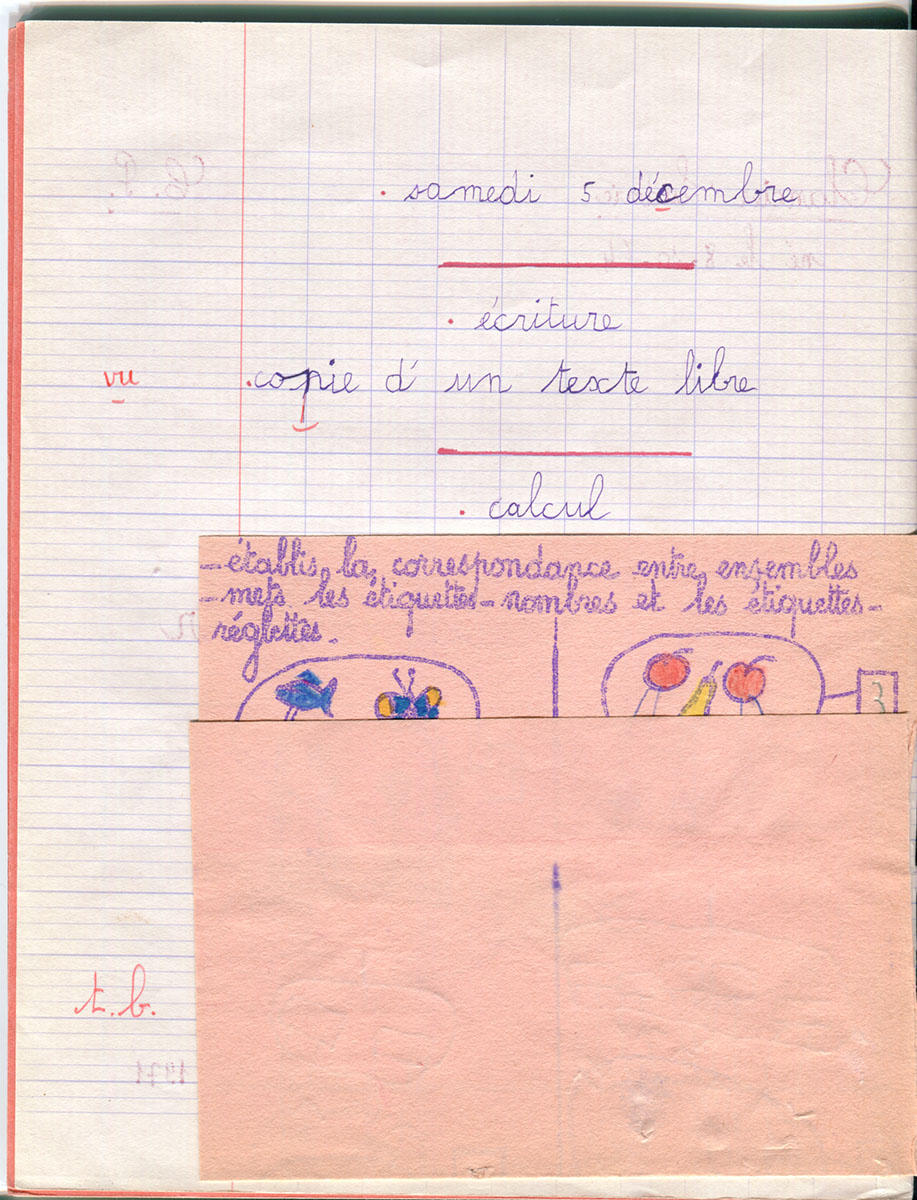 samedi 5 décembre
écriture
vu
copie d'un texte libre
calcul
- établis la correspondance entre ensembles
- mets les étiquettes-nombres et les étiquettes-
réglettes.
3
t.b.
1971